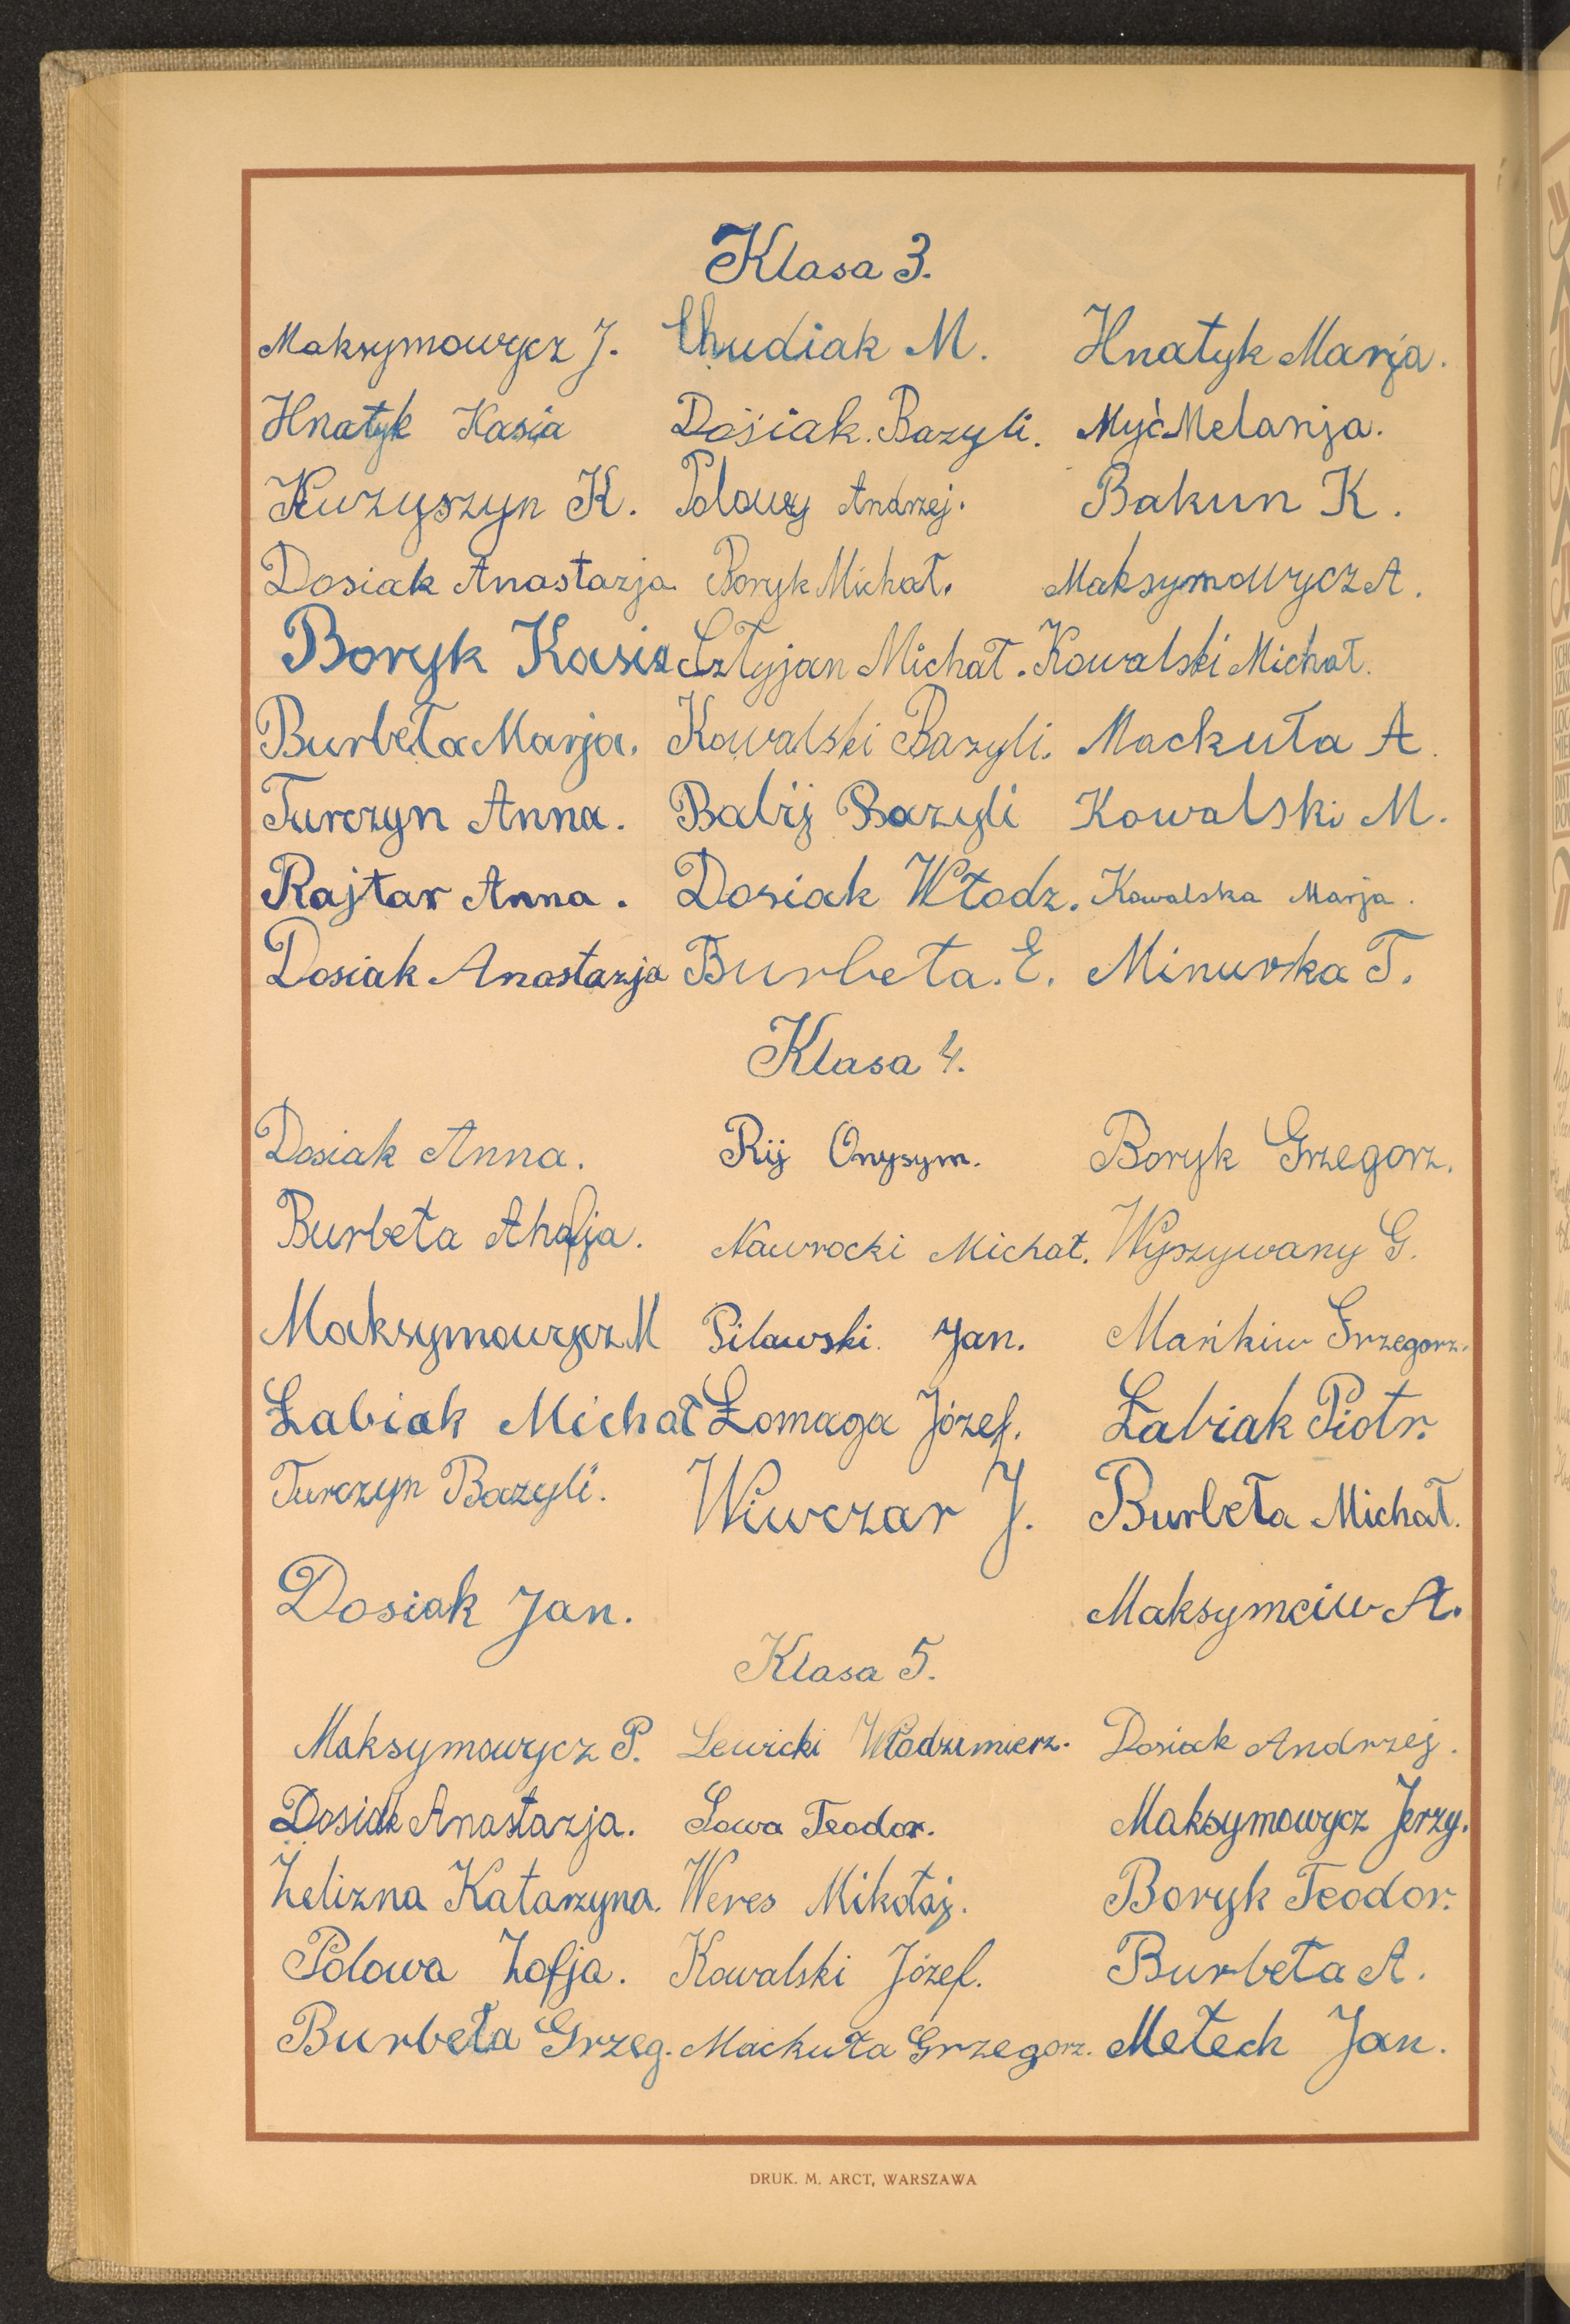 Klasa 3.
Maksymowycz J. Chudiak M. Hnatyk Marja.
Hnatyk Kasia Dosiak. Bazyli. Myć Melanja.
Kuzyszyn K. Polowy Andrzej. Bakun K.
Dosiak Anastazja. Boryk Michał. Maksymowycz A.
Boryk Kasia Sztyjan Michał. Kowalski Michał.
Burbeła Marja. Kowalski Bazyli. Mackuła A.
Turczyn Anna. Balij Bazyli Kowalski M.
Rajtar Anna. Dosiak Włodz. Kowalska Marja.
Dosiak Anastazja Burbeła. E. Minurka T.
Klasa 4.
Dosiak Anna. Rij Onysym. Boryk Grzegorz.
Burbeła Ahafja. Nawrocki Michał. Wyszywany G.
Maksymowycz M Pilawski. Jan. Mańkiw Grzegorz.
Łabiak Michał Łomaga Józef. Łabiak Piotr.
Turczyn Bazyli. Wiwczar J. Burbeła Michał.
Dosiak Jan. Maksymciw A.
Klasa 5.
Maksymowycz P. Lewicki Włodzimierz. Dosiak Andrzej.
Dosiak Anastazja. Sowa Teodor. Maksymowycz Jerzy.
Żelizna Katarzyna. Weres Mikołaj. Boryk Teodor.
Polowa Zofja. Kowalski Józef. Burbeła A.
Burbeła Grzeg. Mackuła Grzegorz. Metech Jan.
DRUK. M. ARCT, WARSZAWA